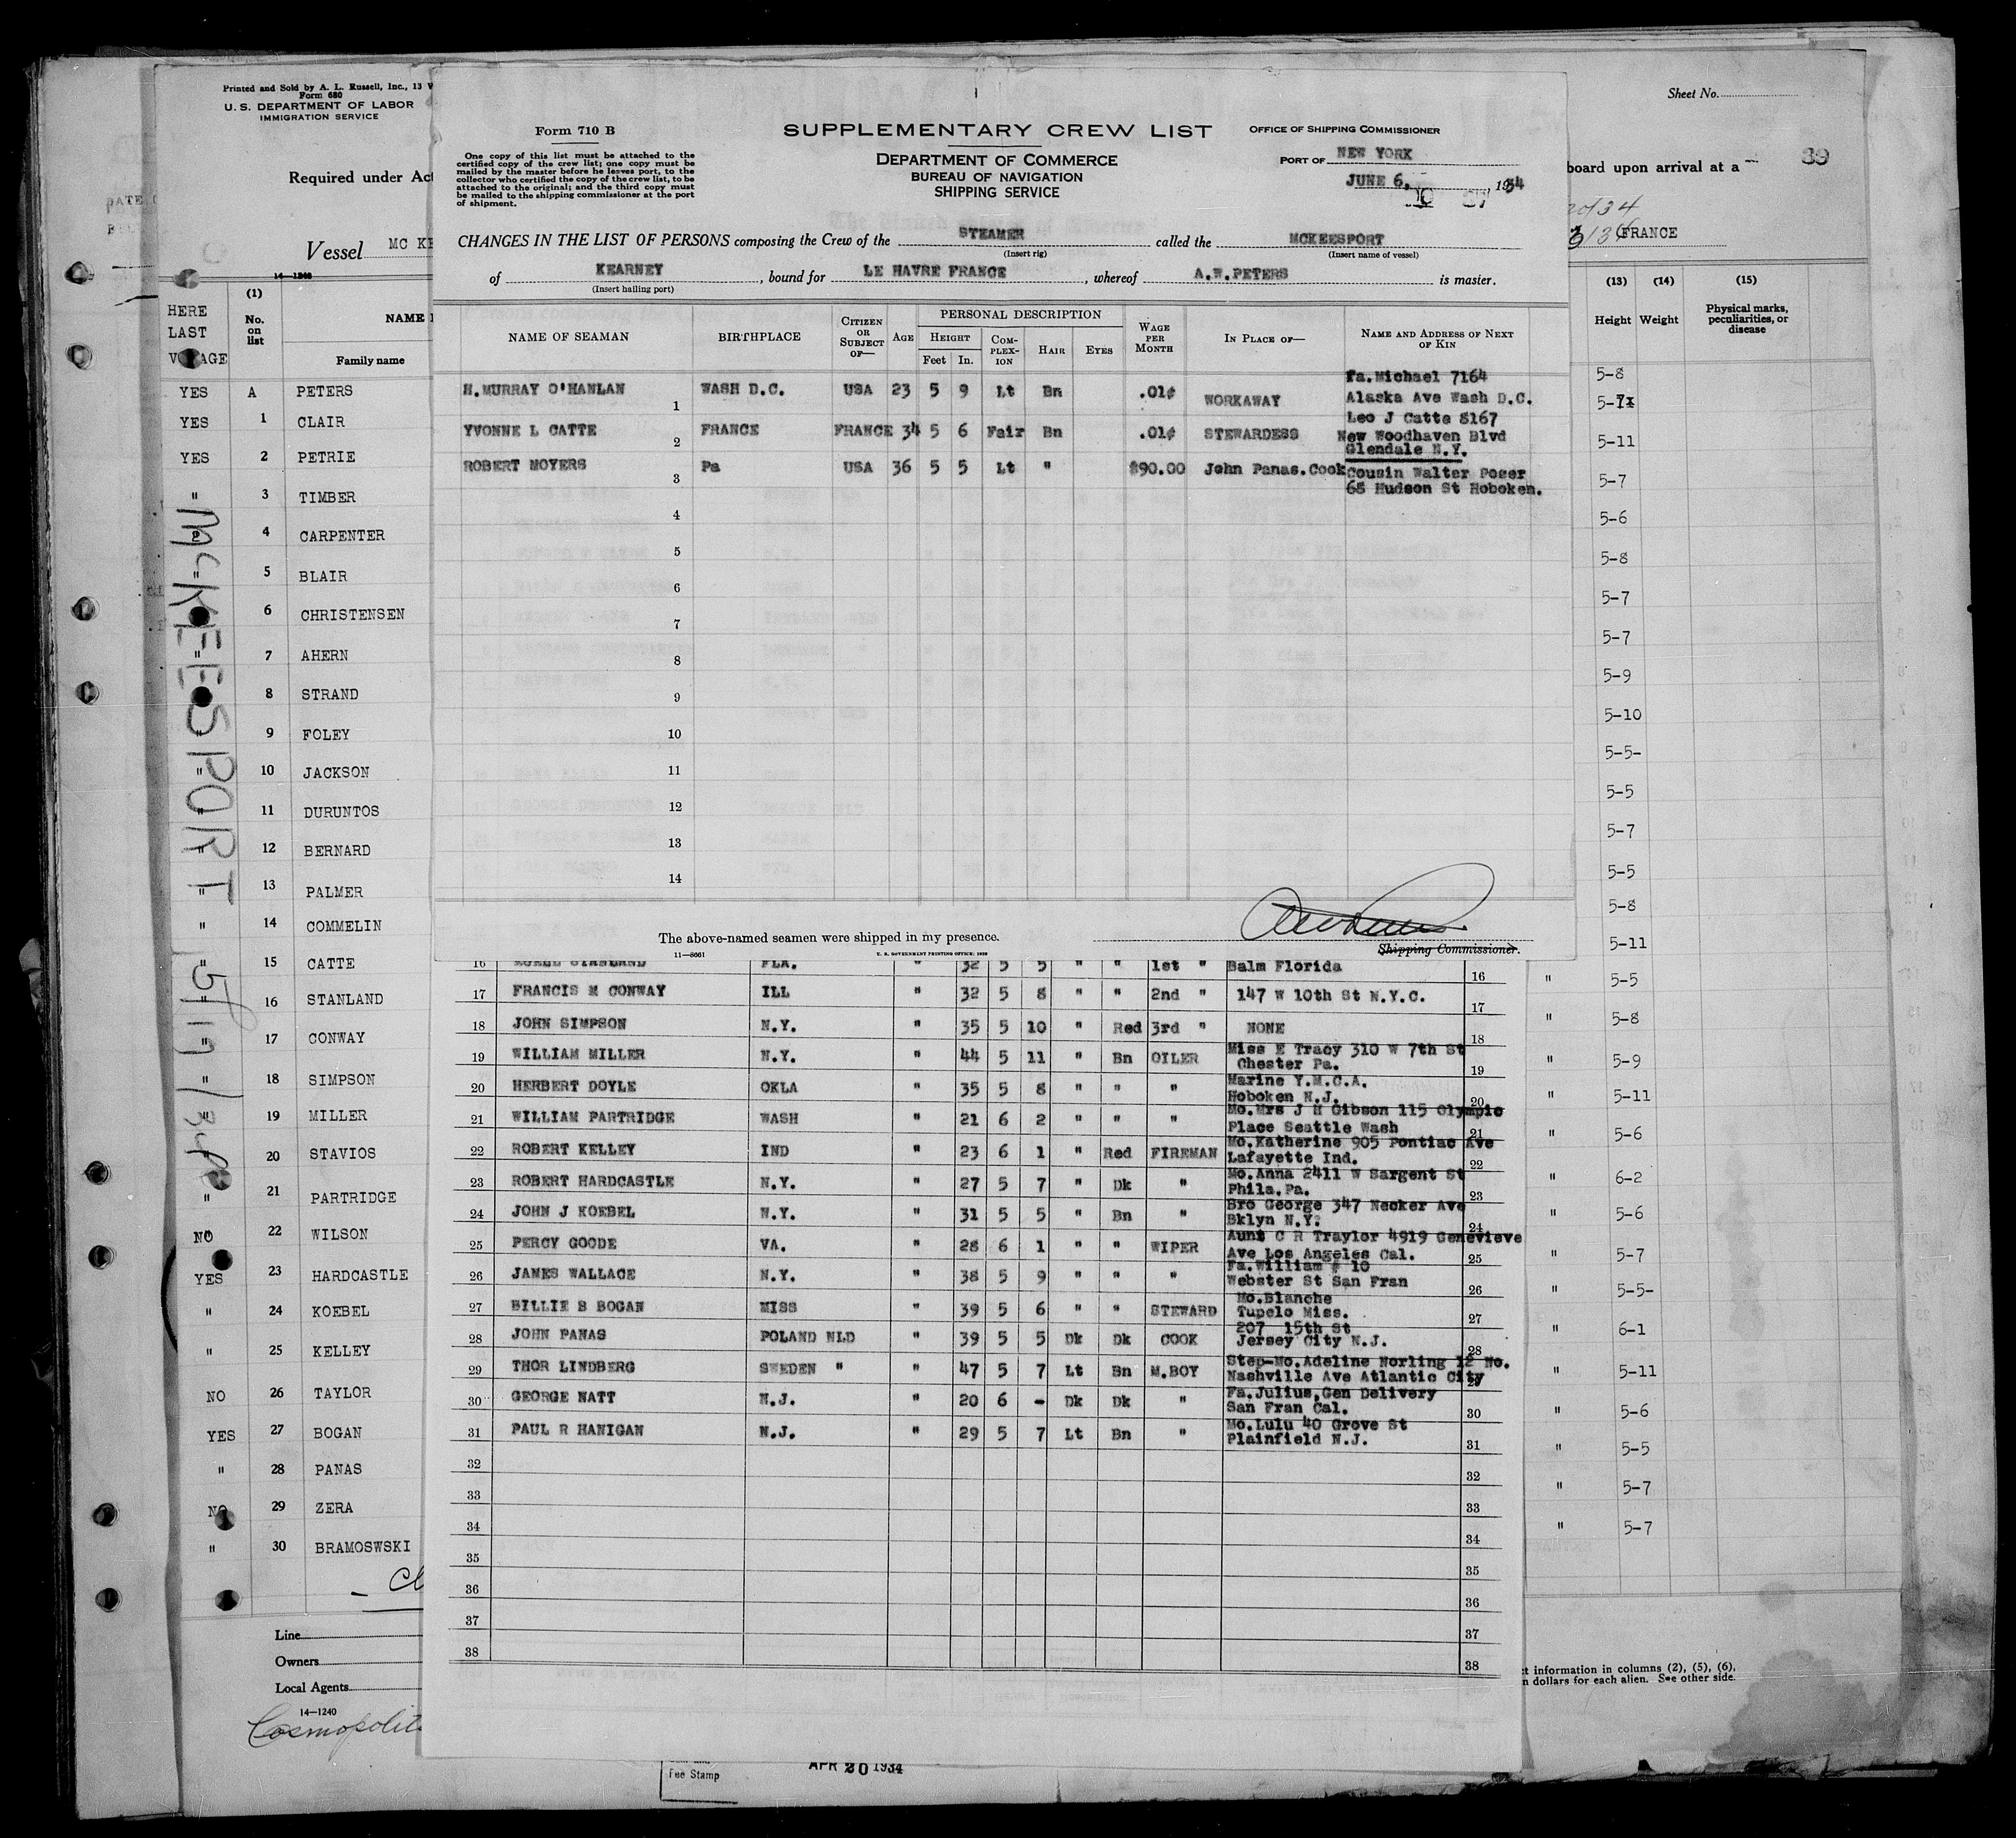 Printed and Sold by A. L. Russell, Inc., 13
Form 680
U. S. DEPARTMENT OF LABOR
IMMIGRATION SERVICE
Required under Act
Vessel MC KE
14—1240
Sheet No.
board upon arrival at a
39
FRANCE
Form 710 B
One copy of this list must be attached to the
certified copy of the crew list; one copy must be
mailed by the master before he leaves port, to the
collector who certified the copy of the crew list, to be
attached to the original; and the third copy must
be mailed to the shipping commissioner at the port
of shipment.
SUPPLEMENTARY CREW LIST
DEPARTMENT OF COMMERCE
BUREAU OF NAVIGATION
SHIPPING SERVICE
OFFICE OF SHIPPING COMMISSIONER
PORT OF NEW YORK
JUNE 6, 1934
CHANGES IN THE LIST OF PERSONS composing the Crew of the STEAMER called the MCKEESPORT
(Insert rig) (Insert name of vessel)
of KEARNEY, bound for LE HAVRE FRANCE, whereof A.W.PETERS is master.
(Insert hailing port)
NAME OF SEAMAN BIRTHPLACE CITIZEN OR SUBJECT OF— AGE PERSONAL DESCRIPTION HEIGHT Feet In. COMPLEXION HAIR EYES WAGE PER MONTH IN PLACE OF— NAME AND ADDRESS OF NEXT OF KIN
H.MURRAY O'HANLAN 1 WASH D.C. USA 23 5 9 Lt Bn .01¢ WORKAWAY Fa.Michael 7164
Alaska Ave Wash D.C.
YVONNE L CATTE 2 FRANCE FRANCE 34 5 6 Fair Bn .01¢ STEWARDESS Leo J Catte 8167
New Woodhaven Blvd
Glendale N.Y.
ROBERT MOYERS 3 Pa USA 36 5 5 Lt " $90.00 John Panas.Cook Cousin Walter Poger
68 Hudson St Hoboken.
4
5
6
7
8
9
10
11
12
13
14
The above-named seamen were shipped in my presence.
Shipping Commissioner.
11—8661
U. S. GOVERNMENT PRINTING OFFICE
16 FLA. " 32 5 5 " " 1st " Balm Florida 16
17 FRANCIS M CONWAY ILL " 32 5 8 " " 2nd " 147 W 10th St N.Y.C. 17
18 JOHN SIMPSON N.Y. " 35 5 10 " Red 3rd " NONE 18
19 WILLIAM MILLER N.Y. " 44 5 11 " Bn OILER Miss E Tracy 310 W 7th St
Chester Pa. 19
20 HERBERT DOYLE OKLA " 35 5 8 " " " Marine Y.M.C.A.
Hoboken N.J. 20
21 WILLIAM PARTRIDGE WASH " 21 6 2 " " " Mo.Mrs J H Gibson 115 Olympic
Place Seattle Wash 21
22 ROBERT KELLEY IND " 23 6 1 " Red FIREMAN Mo.Katherine 905 Pontiac Ave
Lafayette Ind. 22
23 ROBERT HARDCASTLE N.Y. " 27 5 7 " Dk " Mo.Anna 2411 W Sargent St
Phila.Pa. 23
24 JOHN J KOEBEL N.Y. " 31 5 5 " Bn " Bro George 347 Necker Ave
Bklyn N.Y. 24
25 PERCY GOODE VA. " 28 6 1 " " WIPER Aunt C R Traylor 4919 Genevieve
Ave Los Angeles Cal. 25
26 JAMES WALLACE N.Y. " 38 5 9 " " " Fa.William # 10
Webster St San Fran 26
27 BILLIE B BOGAN MISS " 39 5 6 " " STEWARD Mo.Blanche
Tupelo Miss. 27
28 JOHN PANAS POLAND NLD " 39 5 5 Dk Dk COOK 207 15th St
Jersey City N.J. 28
29 THOR LINDBERG SWEDEN " " 47 5 7 Lt Bn M.BOY Step-Mo.Adeline Norling 12 No.
Nashville Ave Atlantic City 29
30 GEORGE NATT N.J. " 20 6 - Dk Dk " Fa.Julius,Gen Delivery
San Fran Cal. 30
31 PAUL R HANIGAN N.J. " 29 5 7 Lt Bn " Mo.Lulu 40 Grove St
Plainfield N.J. 31
32 32
33 33
34 34
35 35
36 36
37 37
38 38
HERE LAST VOYAGE (1) No. on list NAME Family name
YES A PETERS
YES 1 CLAIR
YES 2 PETRIE
" 3 TIMBER
4 CARPENTER
" 5 BLAIR
6 CHRISTENSEN
" 7 AHERN
8 STRAND
" 9 FOLEY
" 10 JACKSON
" 11 DURUNTOS
" 12 BERNARD
" 13 PALMER
" 14 COMMELIN
" 15 CATTE
" 16 STANLAND
" 17 CONWAY
" 18 SIMPSON
" 19 MILLER
20 STAVIOS
" 21 PARTRIDGE
NO 22 WILSON
YES 23 HARDCASTLE
" 24 KOEBEL
" 25 KELLEY
NO 26 TAYLOR
YES 27 BOGAN
" 28 PANAS
NO 29 ZERA
" 30 BRAMOSWSKI
McKEESPORT
Line
Owners
Local Agents
14—1240
Cosmopolit
(13) (14) (15)
Height Weight Physical marks, peculiarities, or disease
5-8
5-7x
5-11
5-7
5-6
5-8
5-7
5-7
5-9
5-10
5-5-
5-5
5-7
5-5
5-8
5-11
" 5-5
" 5-8
" 5-9
" 5-11
" 5-6
" 6-2
" 5-6
" 5-7
" 5-5-
" 6-1
" 5-11
" 5-6
" 5-5
" 5-7
" 5-7
t information in columns (2), (5), (6),
n dollars for each alien. See other side.
Fee Stamp
APR 20 1934